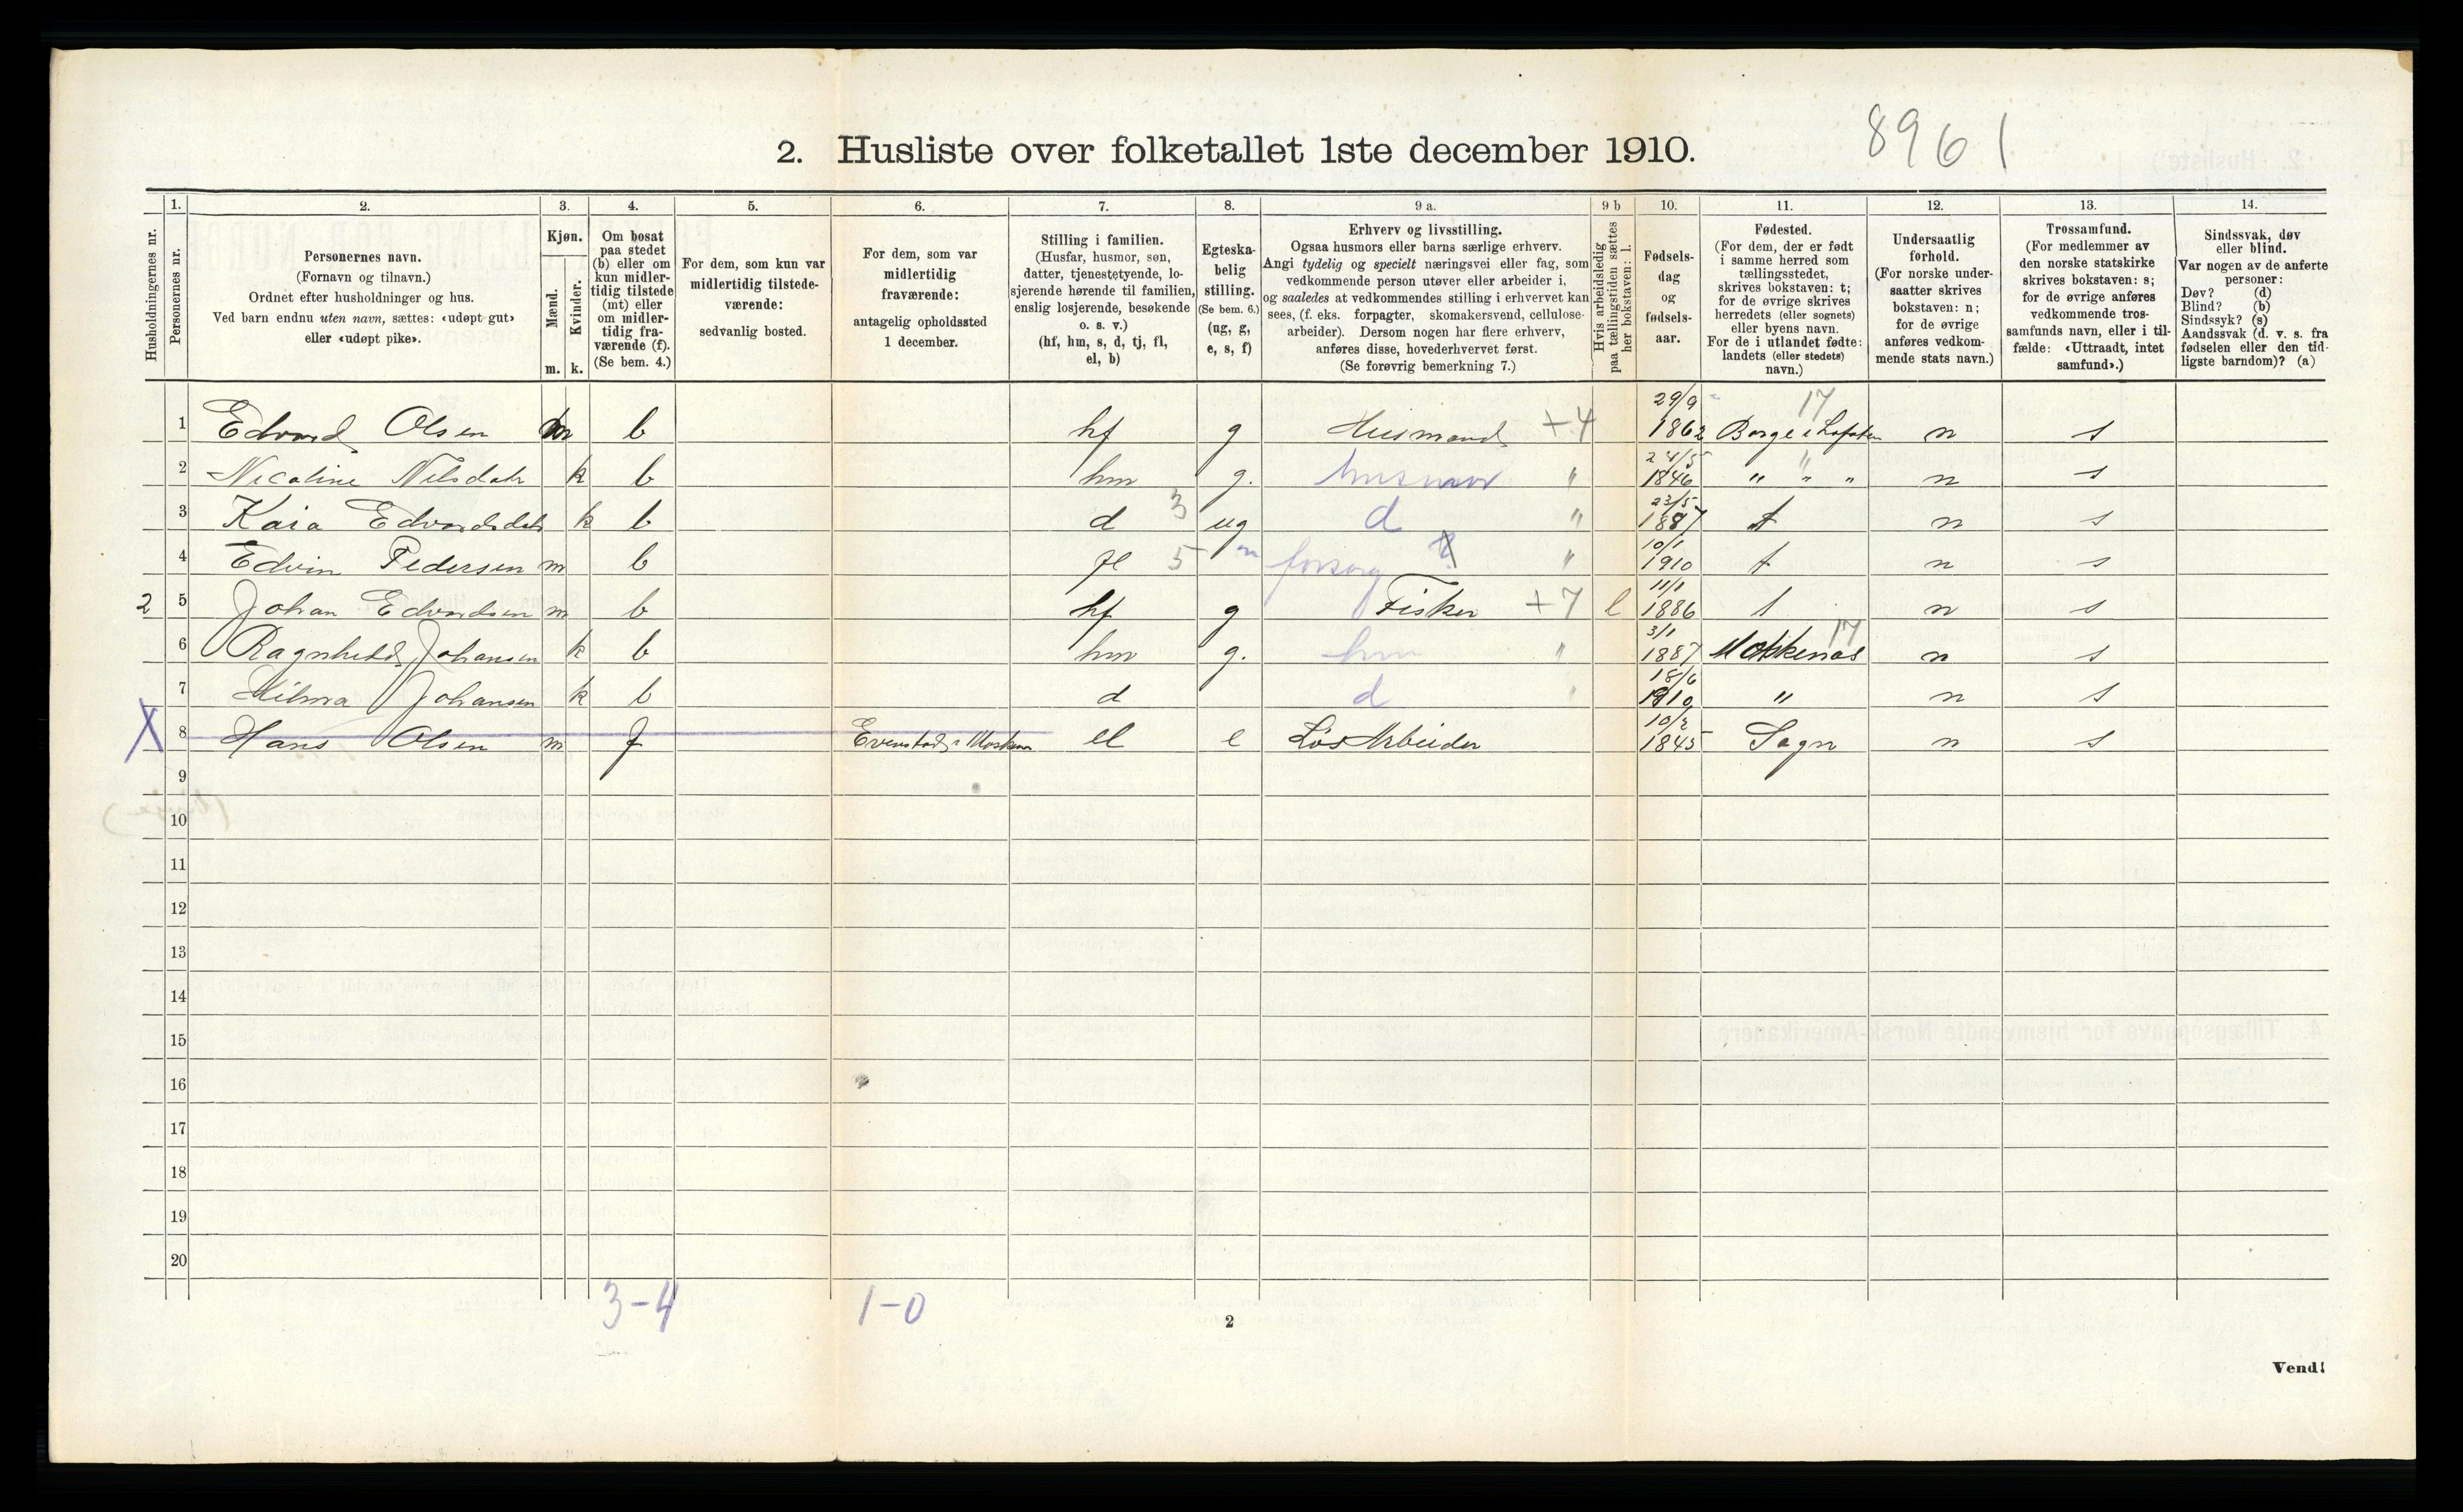 2. Husliste over folketallet 1ste december 1910. 8961
1. 2. 3. 4. 5. 6. 7. 8. 9 a. 9 b 10. 11. 12. 13. 14.
Husholdningernes nr.
Personernes nr.
Personernes navn.
(Fornavn og tilnavn.)
Ordnet efter husholdninger og hus.
Ved barn endnu uten navn, sættes: «udøpt gut»
eller «udøpt pike».
Kjøn.
Mænd.
Kvinder.
m. k.
Om bosat
paa stedet
(b) eller om
kun midler-
tidig tilstede
(mt) eller
om midler-
tidig fra-
værende (f).
(Se bem. 4.)
For dem, som kun var
midlertidig tilstede-
værende:
sedvanlig bosted.
For dem, som var
midlertidig
fraværende:
antagelig opholdssted
1 december.
Stilling i familien.
(Husfar, husmor, søn,
datter, tjenestetyende, lo-
sjerende hørende til familien,
enslig losjerende, besøkende
o. s. v.)
(hf, hm, s, d, tj, fl,
el, b)
Egteska-
belig
stilling.
(Se bem. 6.)
(ug, g,
e, s, f)
Erhverv og livsstilling.
Ogsaa husmors eller barns særlige erhverv.
Angi tydelig og specielt næringsvei eller fag, som
vedkommende person utøver eller arbeider i,
og saaledes at vedkommendes stilling i erhvervet kan
sees, (f. eks. forpagter, skomakersvend, cellulose-
arbeider). Dersom nogen har flere erhverv,
anføres disse, hovederhvervet først.
(Se forøvrig bemerkning 7.)
Hvis arbeidsledig
paa tællingstiden sættes
her bokstaven: l.
Fødsels-
dag
og
fødsels-
aar.
Fødested.
(For dem, der er født
i samme herred som
tællingsstedet,
skrives bokstaven: t;
for de øvrige skrives
herredets (eller sognets)
eller byens navn.
For de i utlandet fødte:
landets (eller stedets)
navn.)
Undersaatlig
forhold.
(For norske under-
saatter skrives
bokstaven: n;
for de øvrige
anføres vedkom-
mende stats navn.)
Trossamfund.
(For medlemmer av
den norske statskirke
skrives bokstaven: s;
for de øvrige anføres
vedkommende tros-
samfunds navn, eller i til-
fælde: «Uttraadt, intet
samfund».)
Sindssvak, døv
eller blind.
Var nogen av de anførte
personer:
Døv? (d)
Blind? (b)
Sindssyk? (s)
Aandssvak (d. v. s. fra
fødselen eller den tid-
ligste barndom)? (a)
1 Edvard Olsen m b hf g Husmand +4 29/9 1862 Borge i Lofoten 17 n s
2 Nicoline Nilsdatr k b hm g. husmor " 24/5 1846 " " " " n s
3 Kaia Edvardsdatr k b d 3 ug d " 23/5 1887 t n s
4 Edvin Pedersen m b fl 5 forsørg " 10/1 1910 t n s
2 5 Johan Edvardsen m b hf g Fisker +7 l 11/1 1886 t n s
6 Ragnhild Johansen k b hm g. hm " 3/1 1887 Moskenæs 17 n s
7 Hilma Johansen k b d d " 18/6 1910 " n s
X 8 Hans Olsen m f Evenstad i Mosken el e Løs Arbeider 10/2 1845 Sogn n s
9
10
11
12
13
14
15
16
17
18
19
20
3-4 1-0
2
Vend!